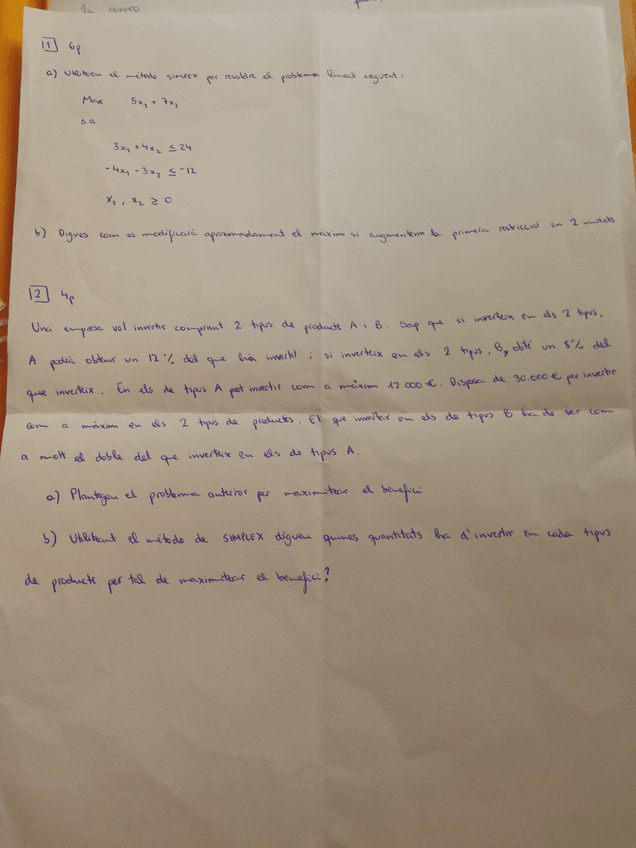 1 6p
a) Utilitzeu el mètode simplex per resoldre el problema lineal següent:
Max 5x₁ + 7x₂
s a
3x₁ + 4x₂ ≤ 24
-4x₁ - 3x₂ ≤ -12
x₁, x₂ ≥ 0
b) Digues com es modificarà aproximadament el màxim si augmentem la primera restricció en 2 unitats
2 4p
Una empresa vol invertir comprant 2 tipus de producte A i B. Sap que si inverteix en els 2 tipus,
A podrà obtenir un 12% del que hi ha invertit i si inverteix en els 2 tipus, B, obté un 8% del
que inverteix. En els de tipus A pot invertir com a màxim 12.000 €. Disposa de 30.000 € per invertir
com a màxim en els 2 tipus de productes. El que inverteix en els de tipus B ha de ser com
a molt el doble del que inverteix en els de tipus A.
a) Plantegeu el problema anterior per maximitzar el benefici
b) Utilitzant el mètode de SIMPLEX digueu quines quantitats ha d'invertir en cada tipus
de producte per tal de maximitzar el benefici?